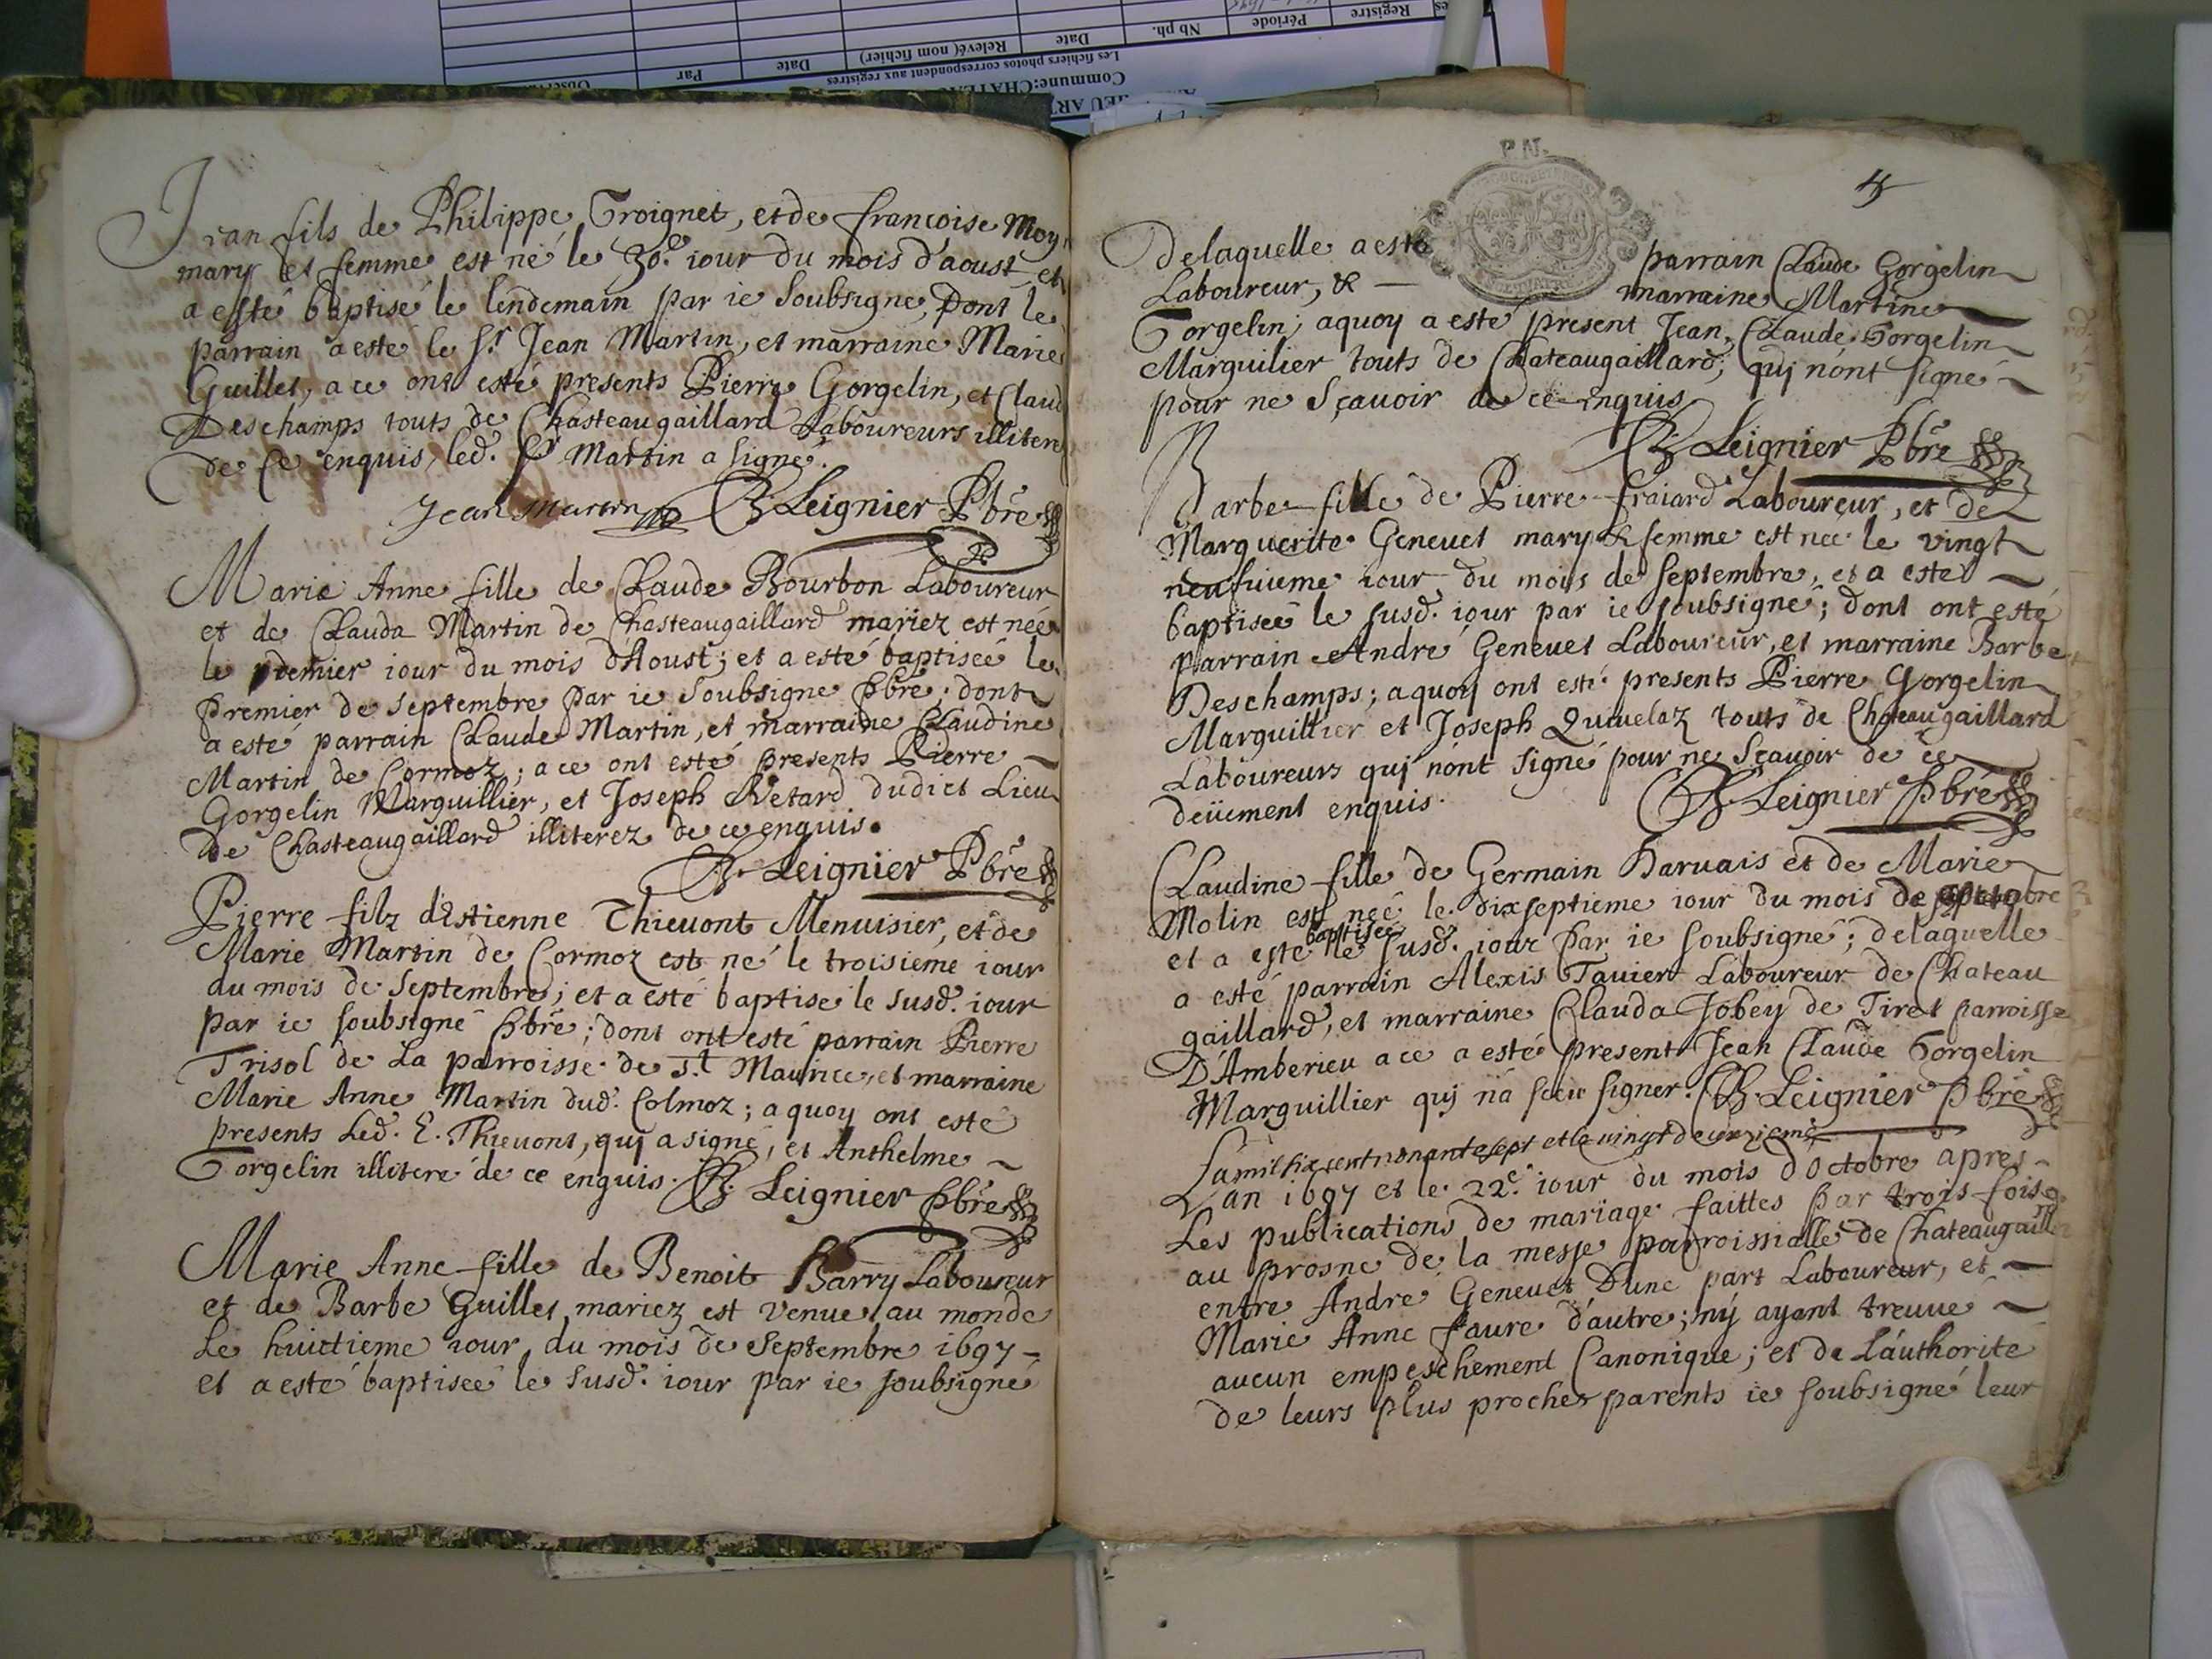 Jean fils de Philippe Troignet, et de francoise Moy
mary et femme est né le 30e. iour du mois d'aoust et
a esté baptisé le lendemain par ie Soubsigne, Dont le
parrain a esté le Sr. Jean Martin, et marraine Marie
Guillet, a ce ont esté presents Pierre Gorgelin, et Claud
Deschamps touts de Chasteaugaillard Laboureurs illitere
de ce enquis, led. Sr Martin a signé.
Jean Martin B. Leignier Pbre
Marie Anne fille de Claude Bourbon Laboureur
et de Clauda Martin de Chasteaugaillard mariez est neé
le premier iour du mois d'Aoust; et a esté baptiseé le
premier de Septembre par ie Soubsigne Pbre; dont
a esté parrain Claude Martin, et marraine Claudine
Martin de Cormoz; a ce ont esté presents Pierre
Gorgelin Marguillier, et Joseph Chetard dudict Lieu
De Chasteaugaillard illiterez de ce enquis.
B. Leignier Pbre
Pierre filz d'Estienne Thievont Menuisier, et de
Marie Martin de Cormoz est né le troisieme iour
du mois de Septembre; et a esté baptise le susd. iour
par ie soubsigné Pbre; dont ont esté parrain Pierre
Trisol de La parroisse de St Maurice, et marraine
Marie Anne Martin dud. Colmoz; a quoy ont esté
presents Led. E. Thievont, qui a signé, et Anthelme
Gorgelin illiteré de ce enquis. B. Leignier Pbre
Marie Anne fille de Benoit Barry Laboureur
et de Barbe Guillet mariez est venue au monde
Le huictieme iour du mois de Septembre 1697
et a esté baptiseé le susd. iour par ie soubsigné
P.N.
Delaquelle a esté parrain Claude Gorgelin
Laboureur, & marraine Martine
Gorgelin; aquoy a esté present Jean, Claude Gorgelin
Marguilier touts de Chateaugaillard; qui n'ont signé
pour ne Sçavoir de ce enquis
B. Leignier Pbre
Barbe fille de Pierre fraiard Laboureur, et de
Marguerite Genevet mary & femme est neé le vingt
neufuieme iour du mois de septembre, et a esté
baptiseé le susd. iour par ie soubsigné; dont ont esté
parrain André Genevet Laboureur, et marraine Barbe
Deschamps; aquoy ont esté presents Pierre Gorgelin
Marguillier et Joseph Quivelaz touts de Chateaugaillard
Laboureurs qui n'ont signé pour ne Sçavoir de ce
deüement enquis.
B. Leignier Pbré
Claudine fille de Germain Harvais et de Marie
Molin est neé le dixseptieme iour du mois de septembre
et a esté baptiseé le susd. iour par ie soubsigné; delaquelle
a esté parrain Alexis Tavier Laboureur de Chateau
gaillard, et marraine Clauda Jobey de Tiret parroisse
D'Amberieu a ce a esté present Jean Claude Gorgelin
Marguillier qui n'a sceu signer. B. Leignier Pbre
Lamil six cent nonante sept et le vingt deuxieme
L'an 1697 et le 22e. iour du mois d'Octobre apres
Les publications de mariage faittes par trois fois
au prosne de la messe parroissialle de Chateaugaill
entre André Genevet D'une part Laboureur, et
Marie Anne faure d'autre; n'y ayant treuué
aucun empeschement Canonique; et de L'authorité
de leurs plus proches parents ie soubsigné leur